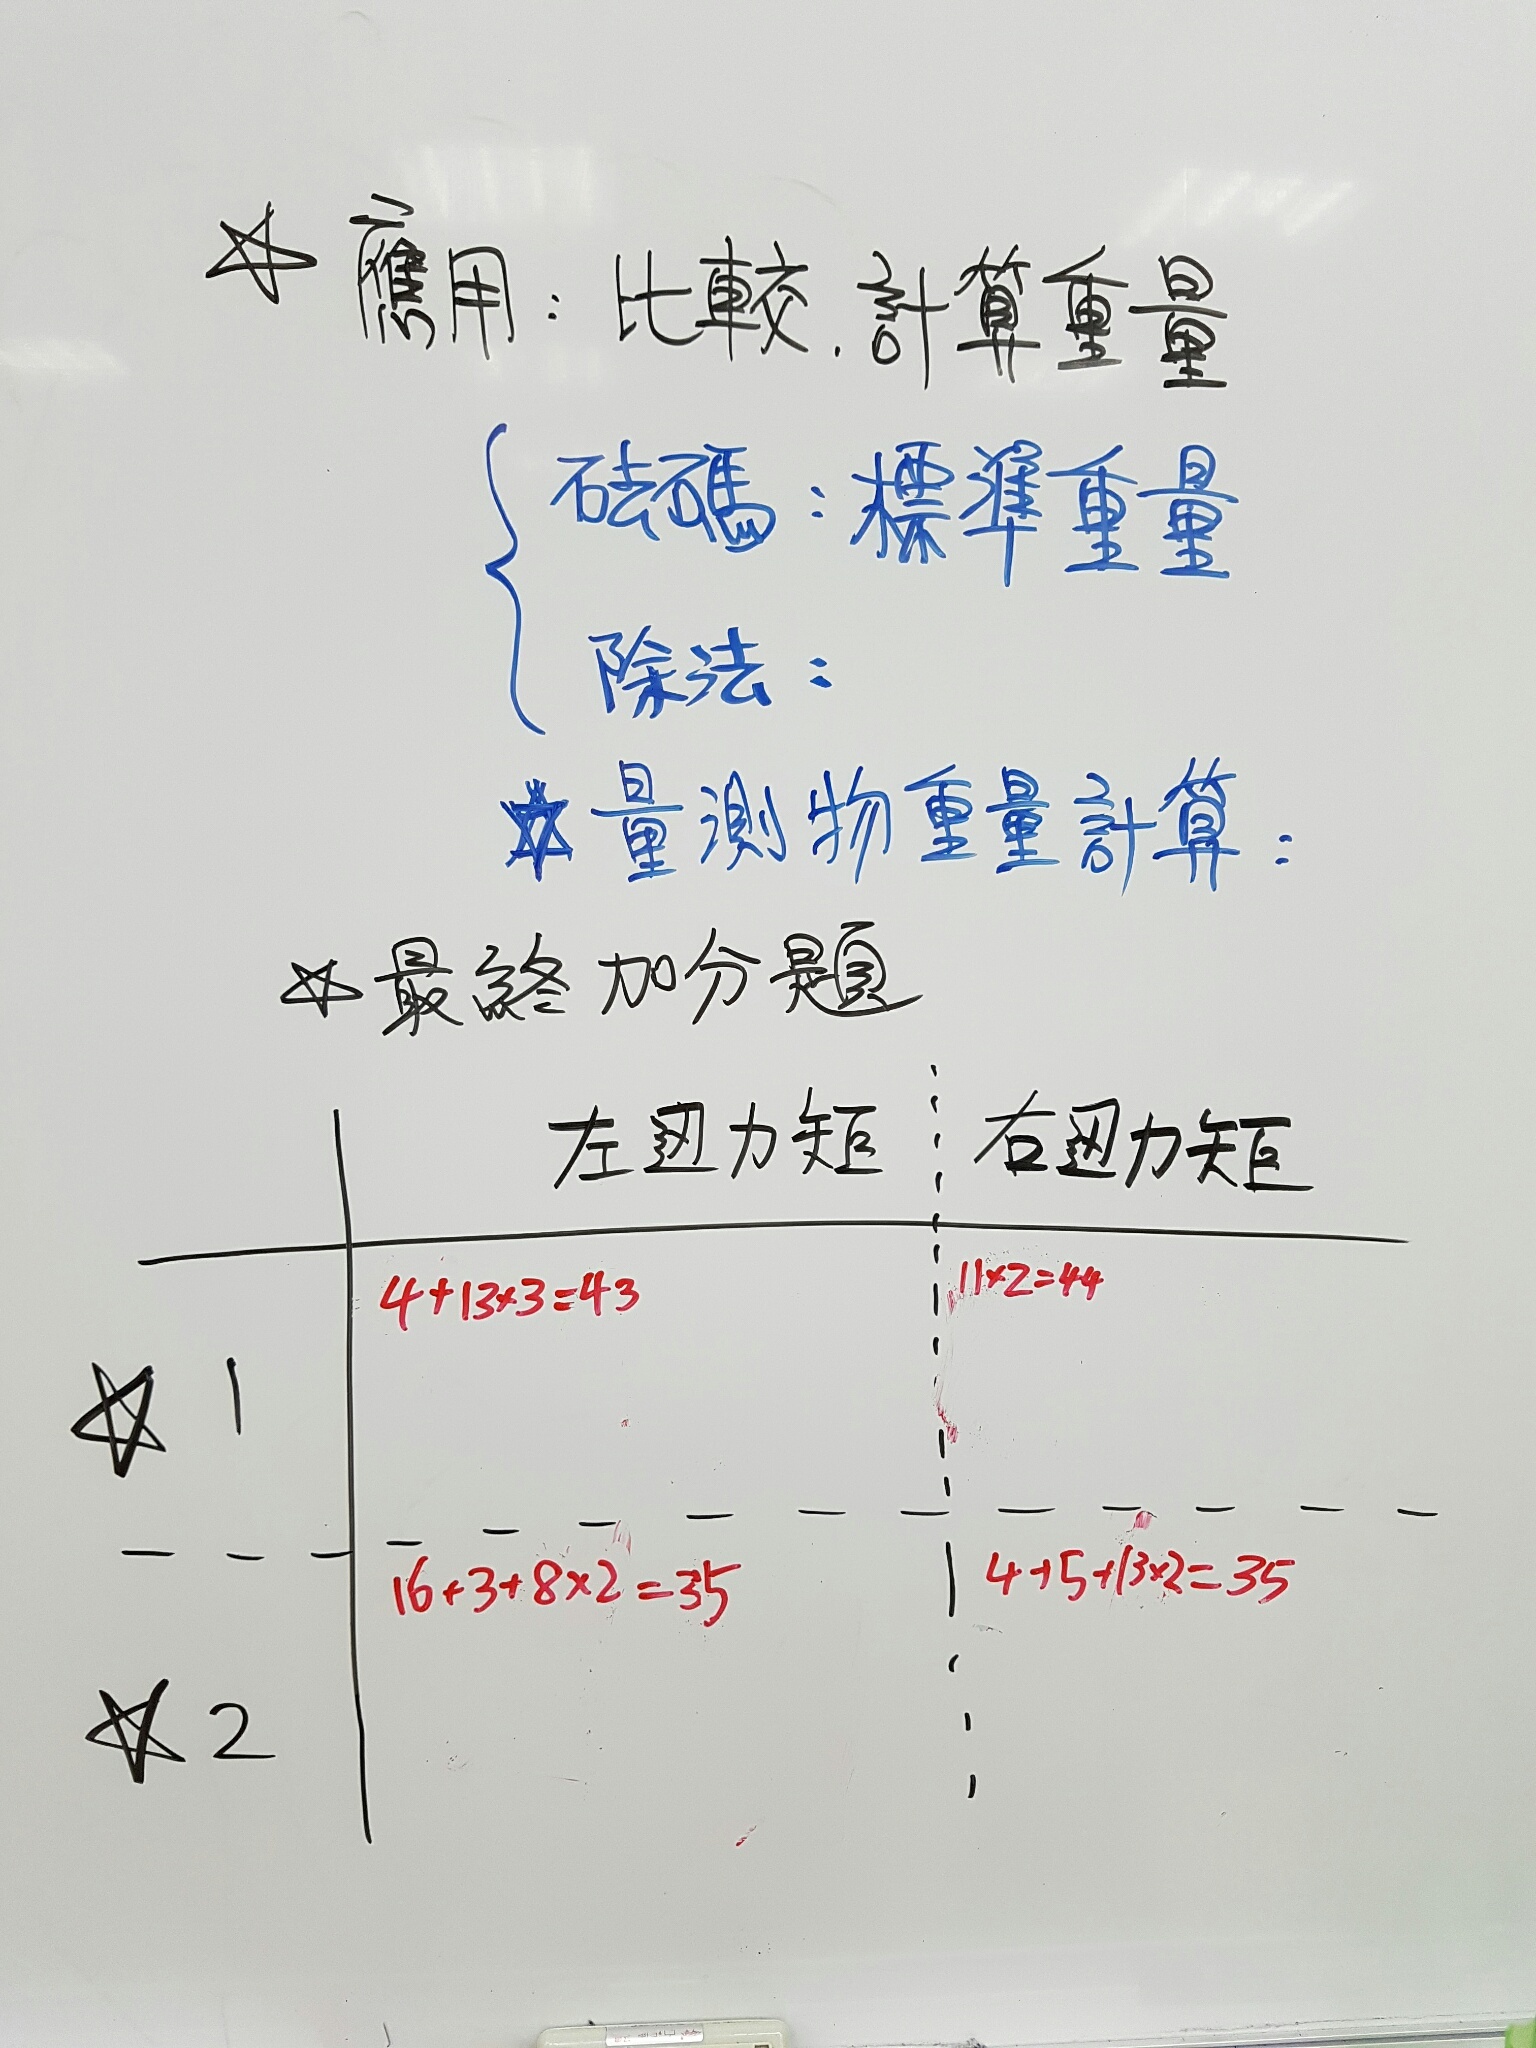 ☆ 應用：比較、計算重量
砝碼：標準重量
除法：
☆ 量測物重量計算：
☆ 最終加分題
左边力矩 右边力矩
4+13×3=43 11×2=44
☆ 1
16+3+8×2=35 4+5+13×2=35
☆ 2